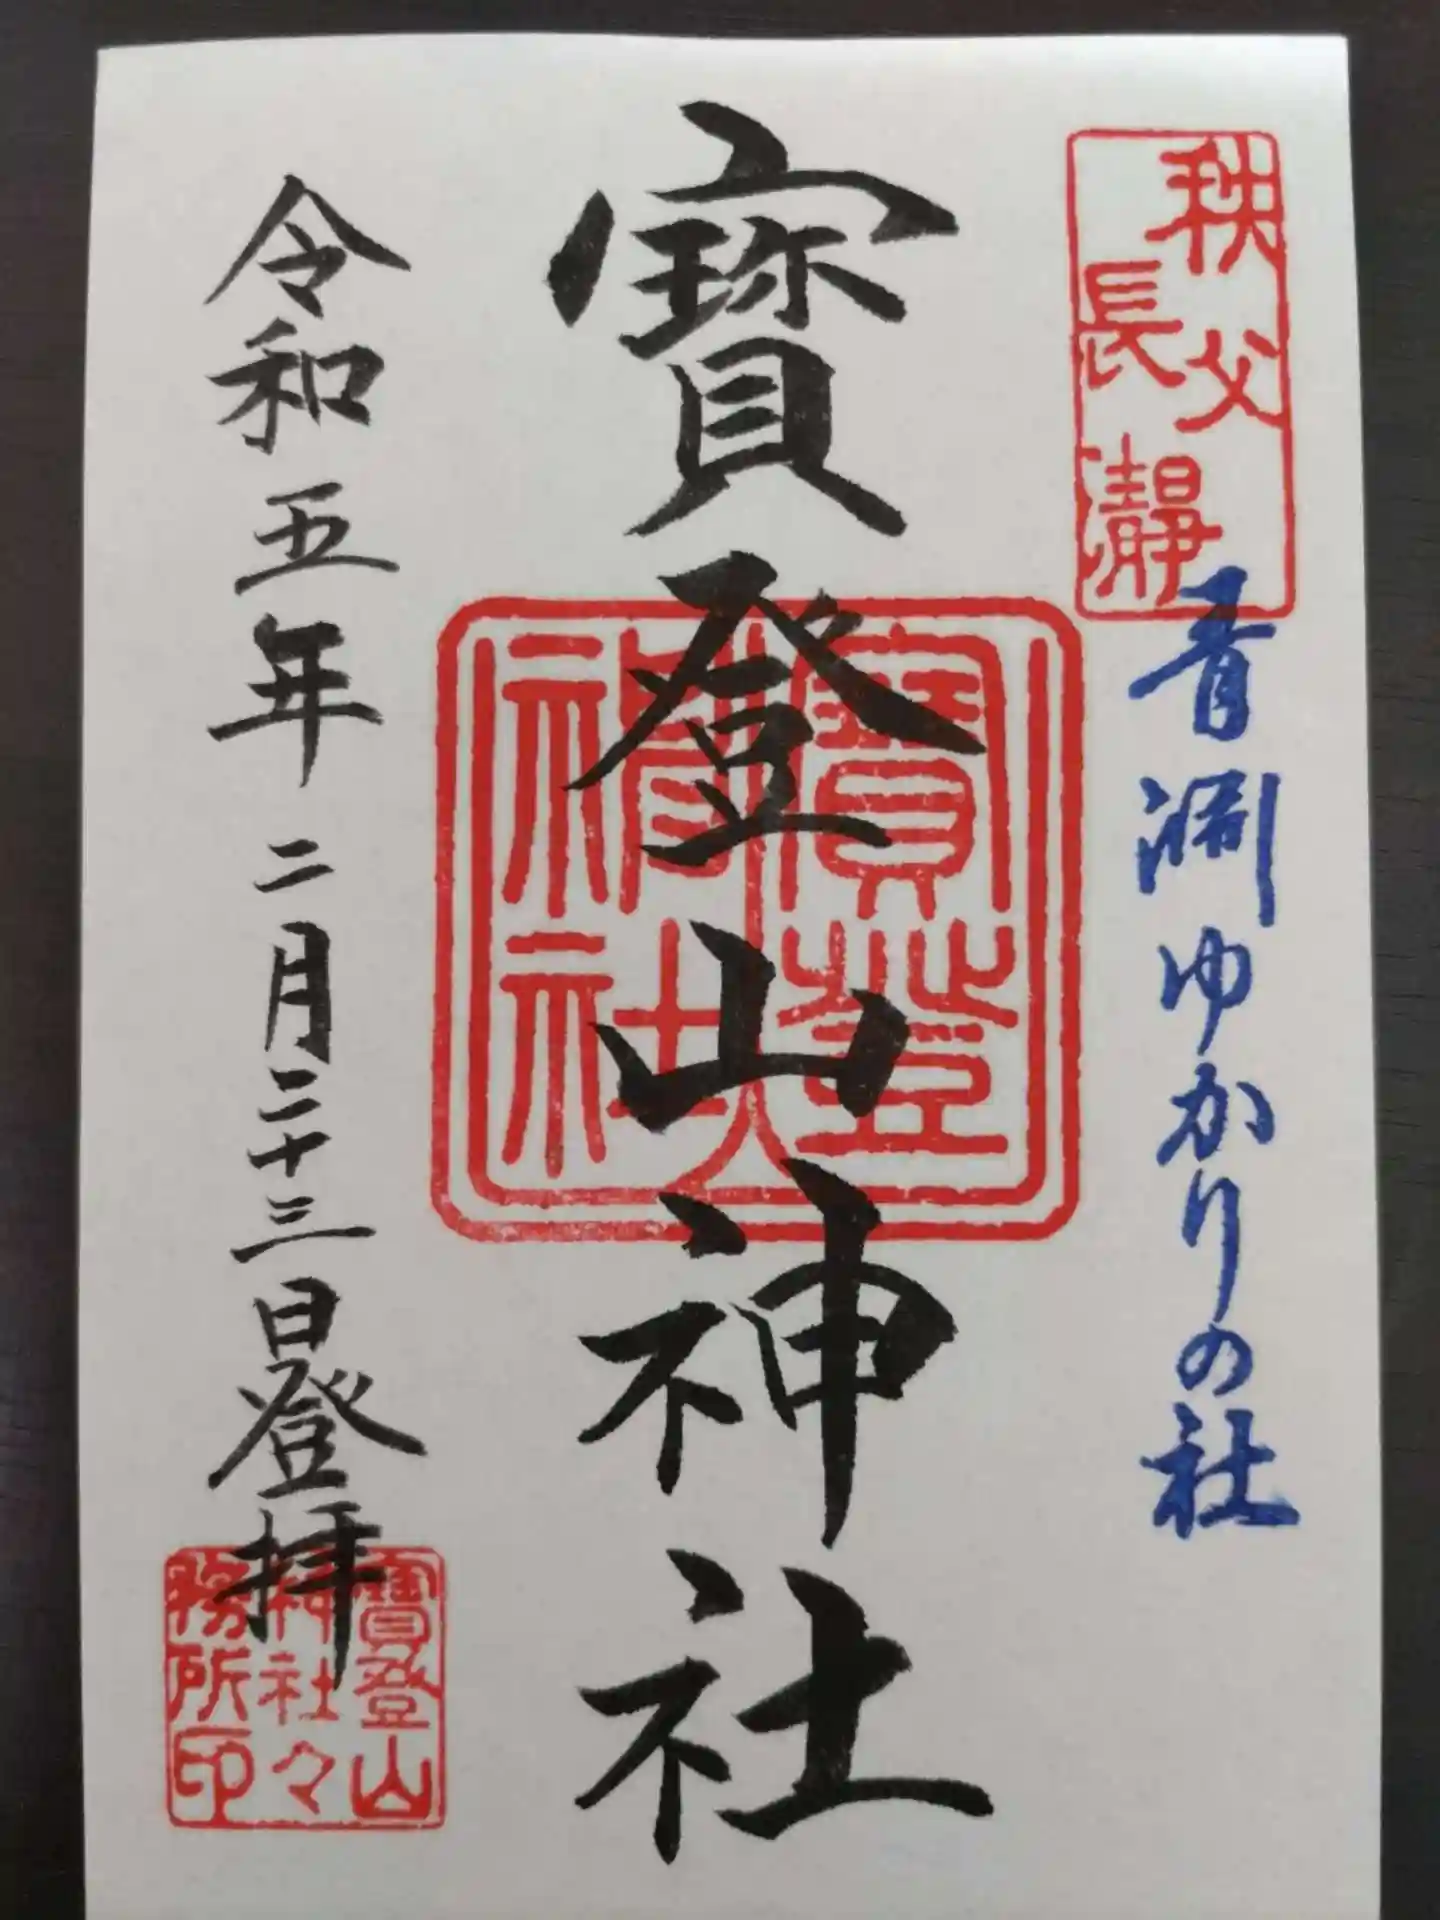 秩父
長瀞
青淵ゆかりの社
寶登山神社
寶登
神社
令和五年二月二十三日登拝
寶登山
神社々
務所印